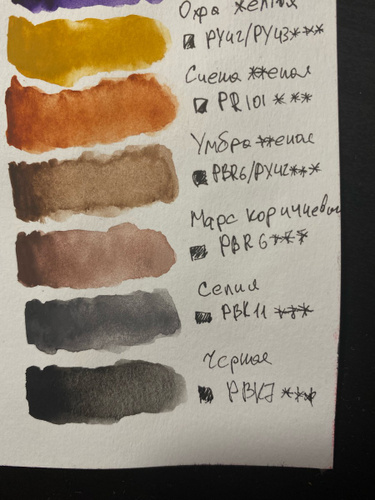 Охра жёлтая
PY42/PY43***
Сиена **еная
PR101 ***
Умбра **еная
PBR6/PY42***
Марс коричневы
PBR6***
Сепия
PBK11 ***
Чёрная
PBK7 ***